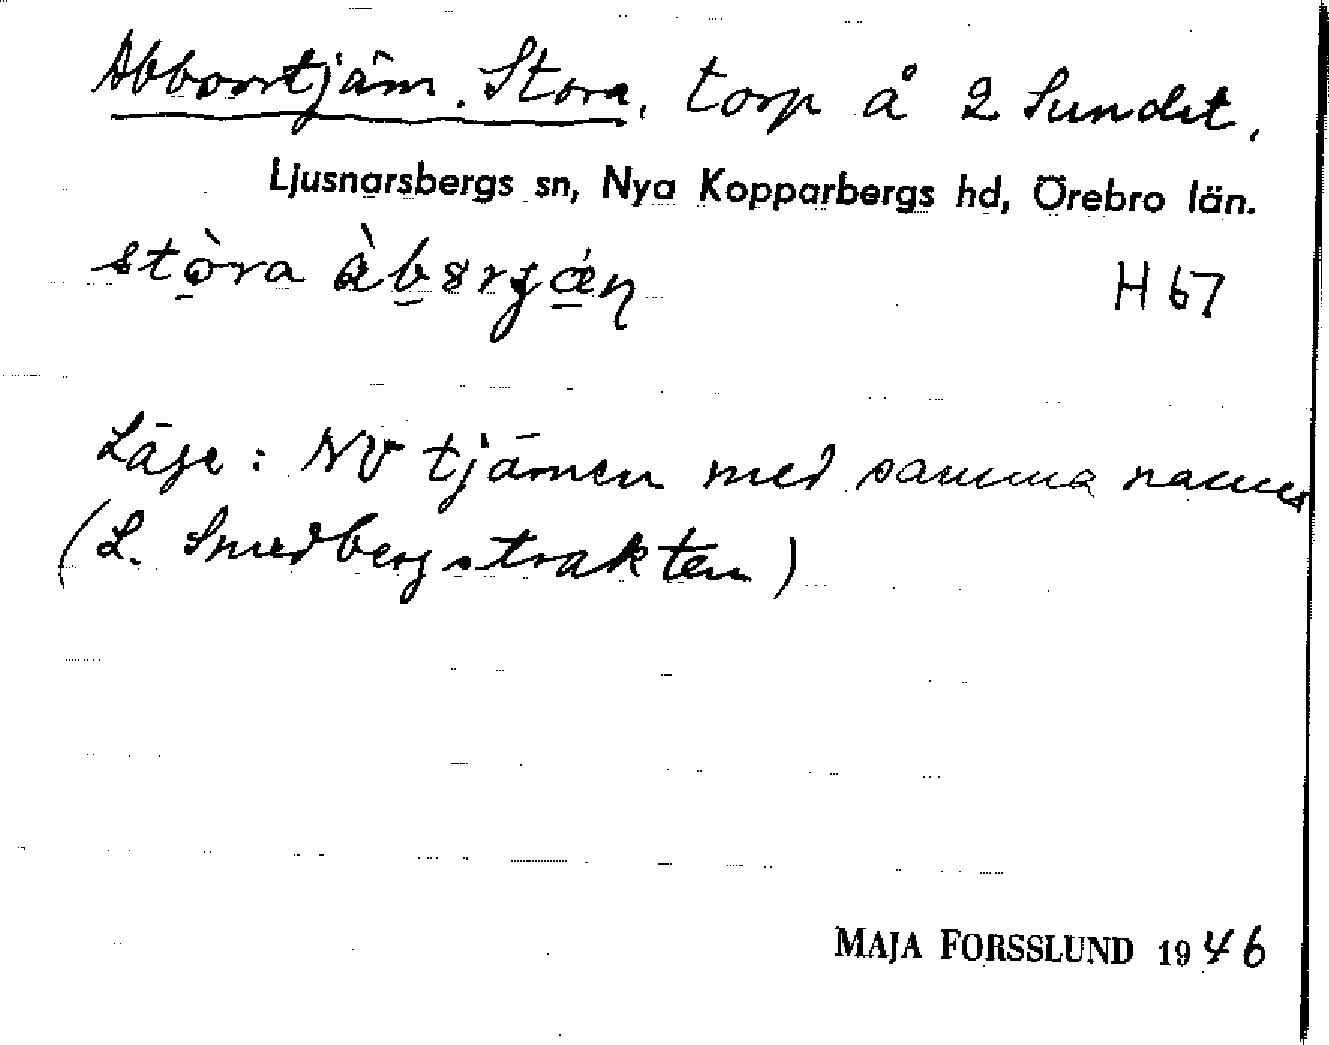 Abborrtjärn. Stora, torp å 2 Sundet,
Ljusnarsbergs sn, Nya Kopparbergs hd, Örebro län.
stòra
H 67
Läge: NV tjärnen med samma namn
(L. Smedbergstrakten)
MAJA FORSSLUND 1946